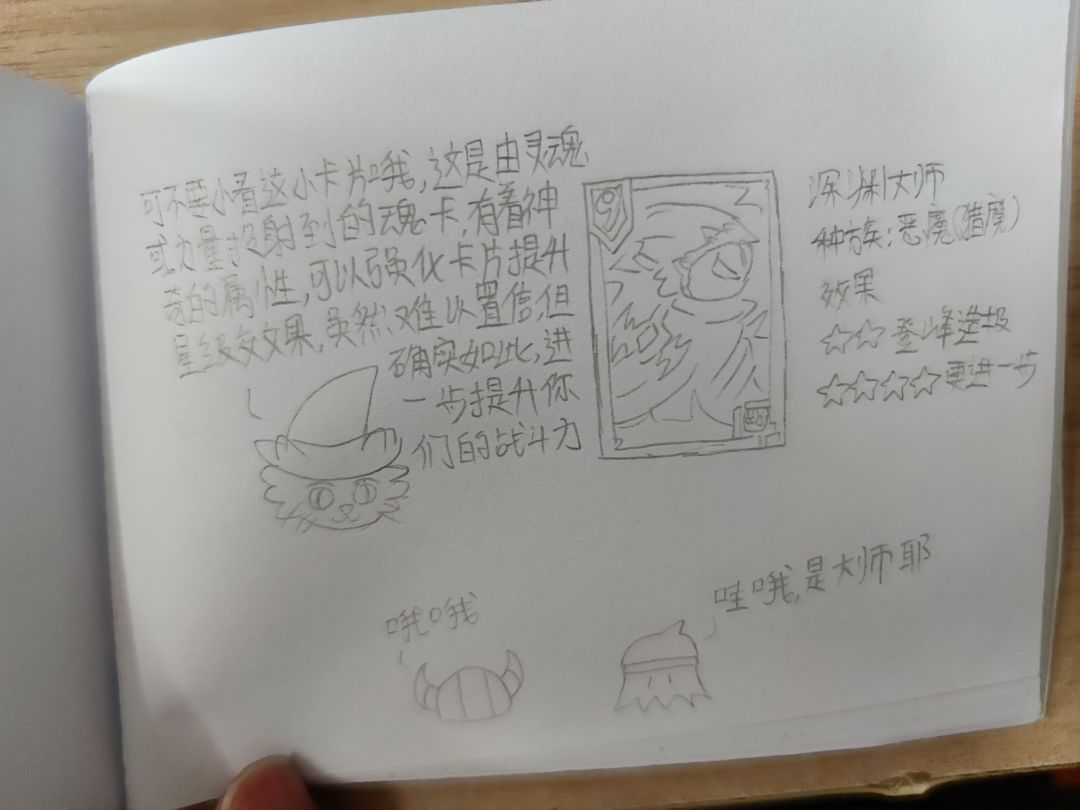 可不要小看这小卡片哦,这是由灵魂
或力量投射到的魂卡,有着神
奇的属性,可以强化卡片提升
星级效果,虽然难以置信,但
确实如此,进
一步提升你
们的战斗力
9
深渊大师
种族:恶魔(猎魔)
效果
☆☆登峰造极
☆☆☆☆更进一步
哦哦
哇哦,是大师耶